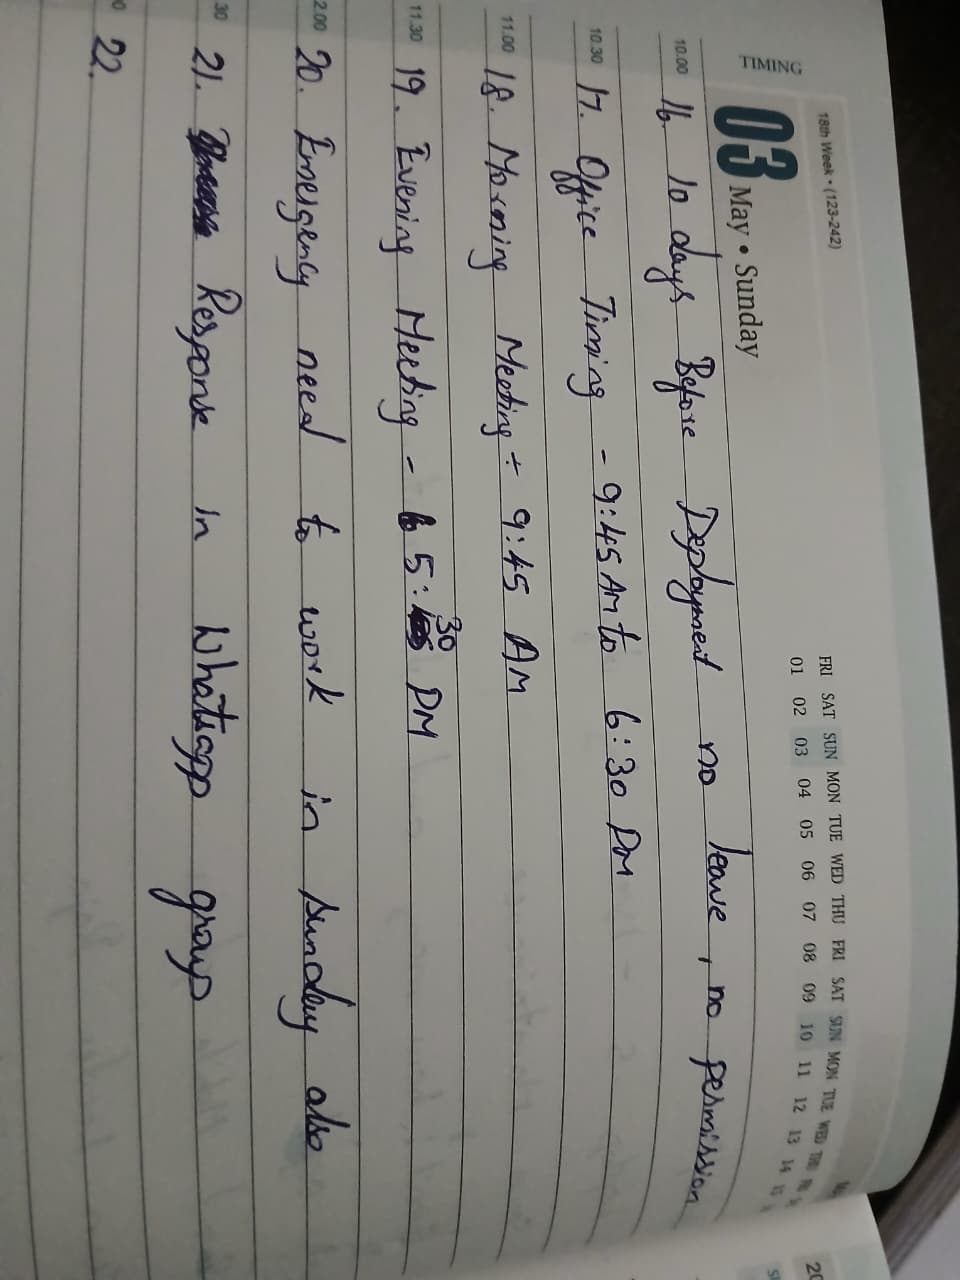 18th Week • (123-242)
03 May • Sunday
FRI SAT SUN MON TUE WED THU FRI SAT SUN MON TUE WED THU FRI
01 02 03 04 05 06 07 08 09 10 11 12 13 14 15
TIMING
10.00 16. 10 days Before Deployment no leave, no permission
10.30 17. Office Timing - 9:45 AM to 6:30 PM
11.00 18. Morning Meeting ÷ 9:45 AM
11.30 19. Evening Meeting - 5:30 PM
2.00 20. Emergency need to work in sunday also
30 21. Response in Whatsapp group
22.